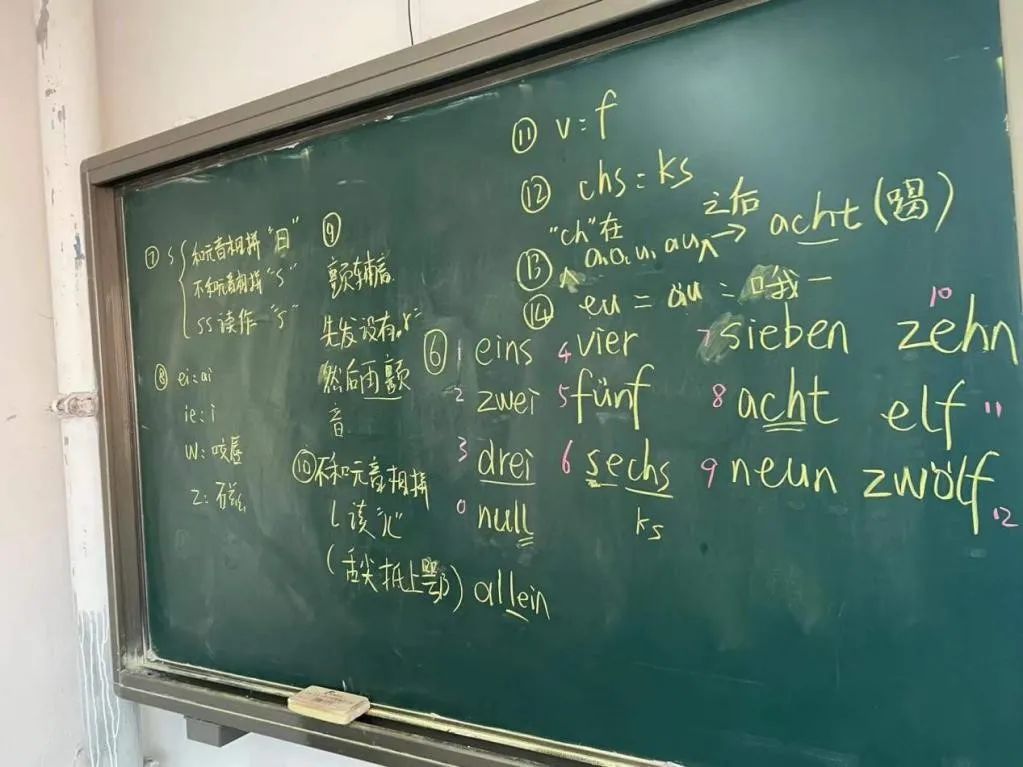 ⑦ s { 和元音相拼 "日"
不和元音相拼 "s"
ss 读作 "s"
⑧ ei: ai
ie: i
w: 咬唇
z:
⑨
颤辅音
先发没有 "r"
然后再颤
音
⑩ 不和元音相拼
l 读
(舌尖抵上鄂) allein
⑪ v = f
⑫ chs = ks
⑬ "ch" 在 a, o, u, au 之后 → acht (喝)
⑭ eu = äu = 哦一
⑥ 1 eins 4 vier 7 sieben 10 zehn
2 zwei 5 fünf 8 acht elf 11
3 drei 6 sechs 9 neun zwölf 12
0 null ks